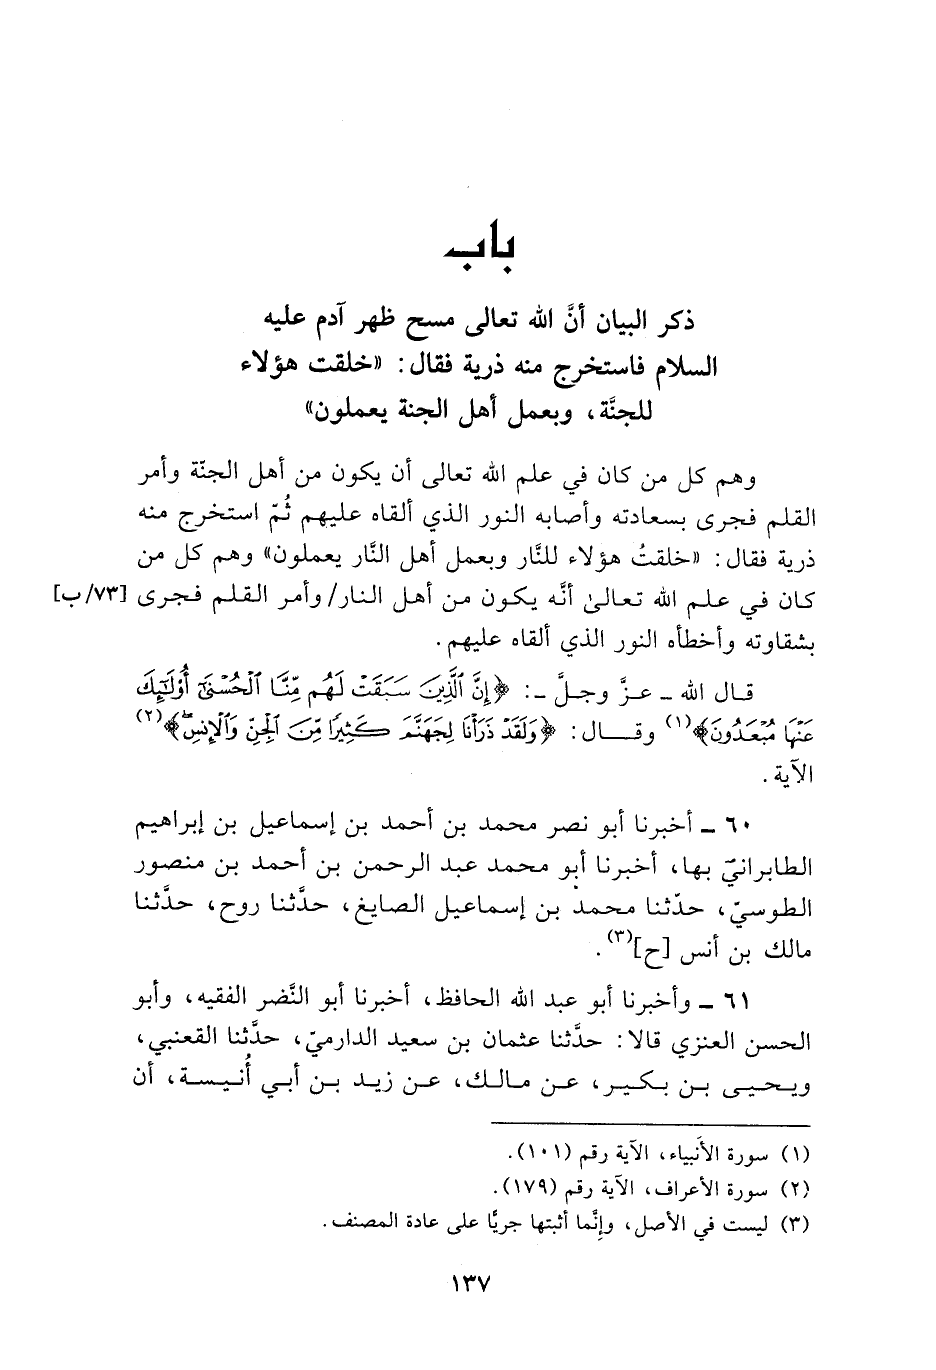 باب
ذكر البيان أنَّ الله تعالى مسح ظهر آدم عليه
السلام فاستخرج منه ذرية فقال: «خلقت هؤلاء
للجنَّة، وبعمل أهل الجنة يعملون»
وهم كل من كان في علم الله تعالى أن يكون من أهل الجنّة وأمر
القلم فجرى بسعادته وأصابه النور الذي ألقاه عليهم ثُمّ استخرج منه
ذرية فقال: «خلقتُ هؤلاء للنَّار وبعمل أهل النَّار يعملون» وهم كل من
كان في علم الله تعالىٰ أنَّه يكون من أهل النار/ وأمر القلم فجرى [٧٣/ب]
بشقاوته وأخطأه النور الذي ألقاه عليهم.
قال الله ـ عزَّ وجلَّ ـ: ﴿إِنَّ ٱلَّذِينَ سَبَقَتْ لَهُم مِّنَّا ٱلْحُسْنَىٰٓ أُوْلَٰٓئِكَ
عَنْهَا مُبْعَدُونَ﴾(١) وقال: ﴿وَلَقَدْ ذَرَأْنَا لِجَهَنَّمَ كَثِيرًا مِّنَ ٱلْجِنِّ وَٱلْإِنسِۖ﴾(٢)
الآية.
٦٠ ـ أخبرنا أبو نصر محمد بن أحمد بن إسماعيل بن إبراهيم
الطابرانيّ بها، أخبرنا أبو محمد عبد الرحمن بن أحمد بن منصور
الطوسيّ، حدّثنا محمد بن إسماعيل الصايغ، حدَّثنا روح، حدَّثنا
مالك بن أنس [ح](٣).
٦١ ـ وأخبرنا أبو عبد الله الحافظ، أخبرنا أبو النَّضر الفقيه، وأبو
الحسن العنزي قالا: حدَّثنا عثمان بن سعيد الدارميّ، حدَّثنا القعنبي،
ويحيى بن بكير، عن مالك، عن زيد بن أبي أُنيسة، أن
(١) سورة الأنبياء، الآية رقم (١٠١).
(٢) سورة الأعراف، الآية رقم (١٧٩).
(٣) ليست في الأصل، وإنَّما أثبتها جريًّا على عادة المصنف.
١٣٧